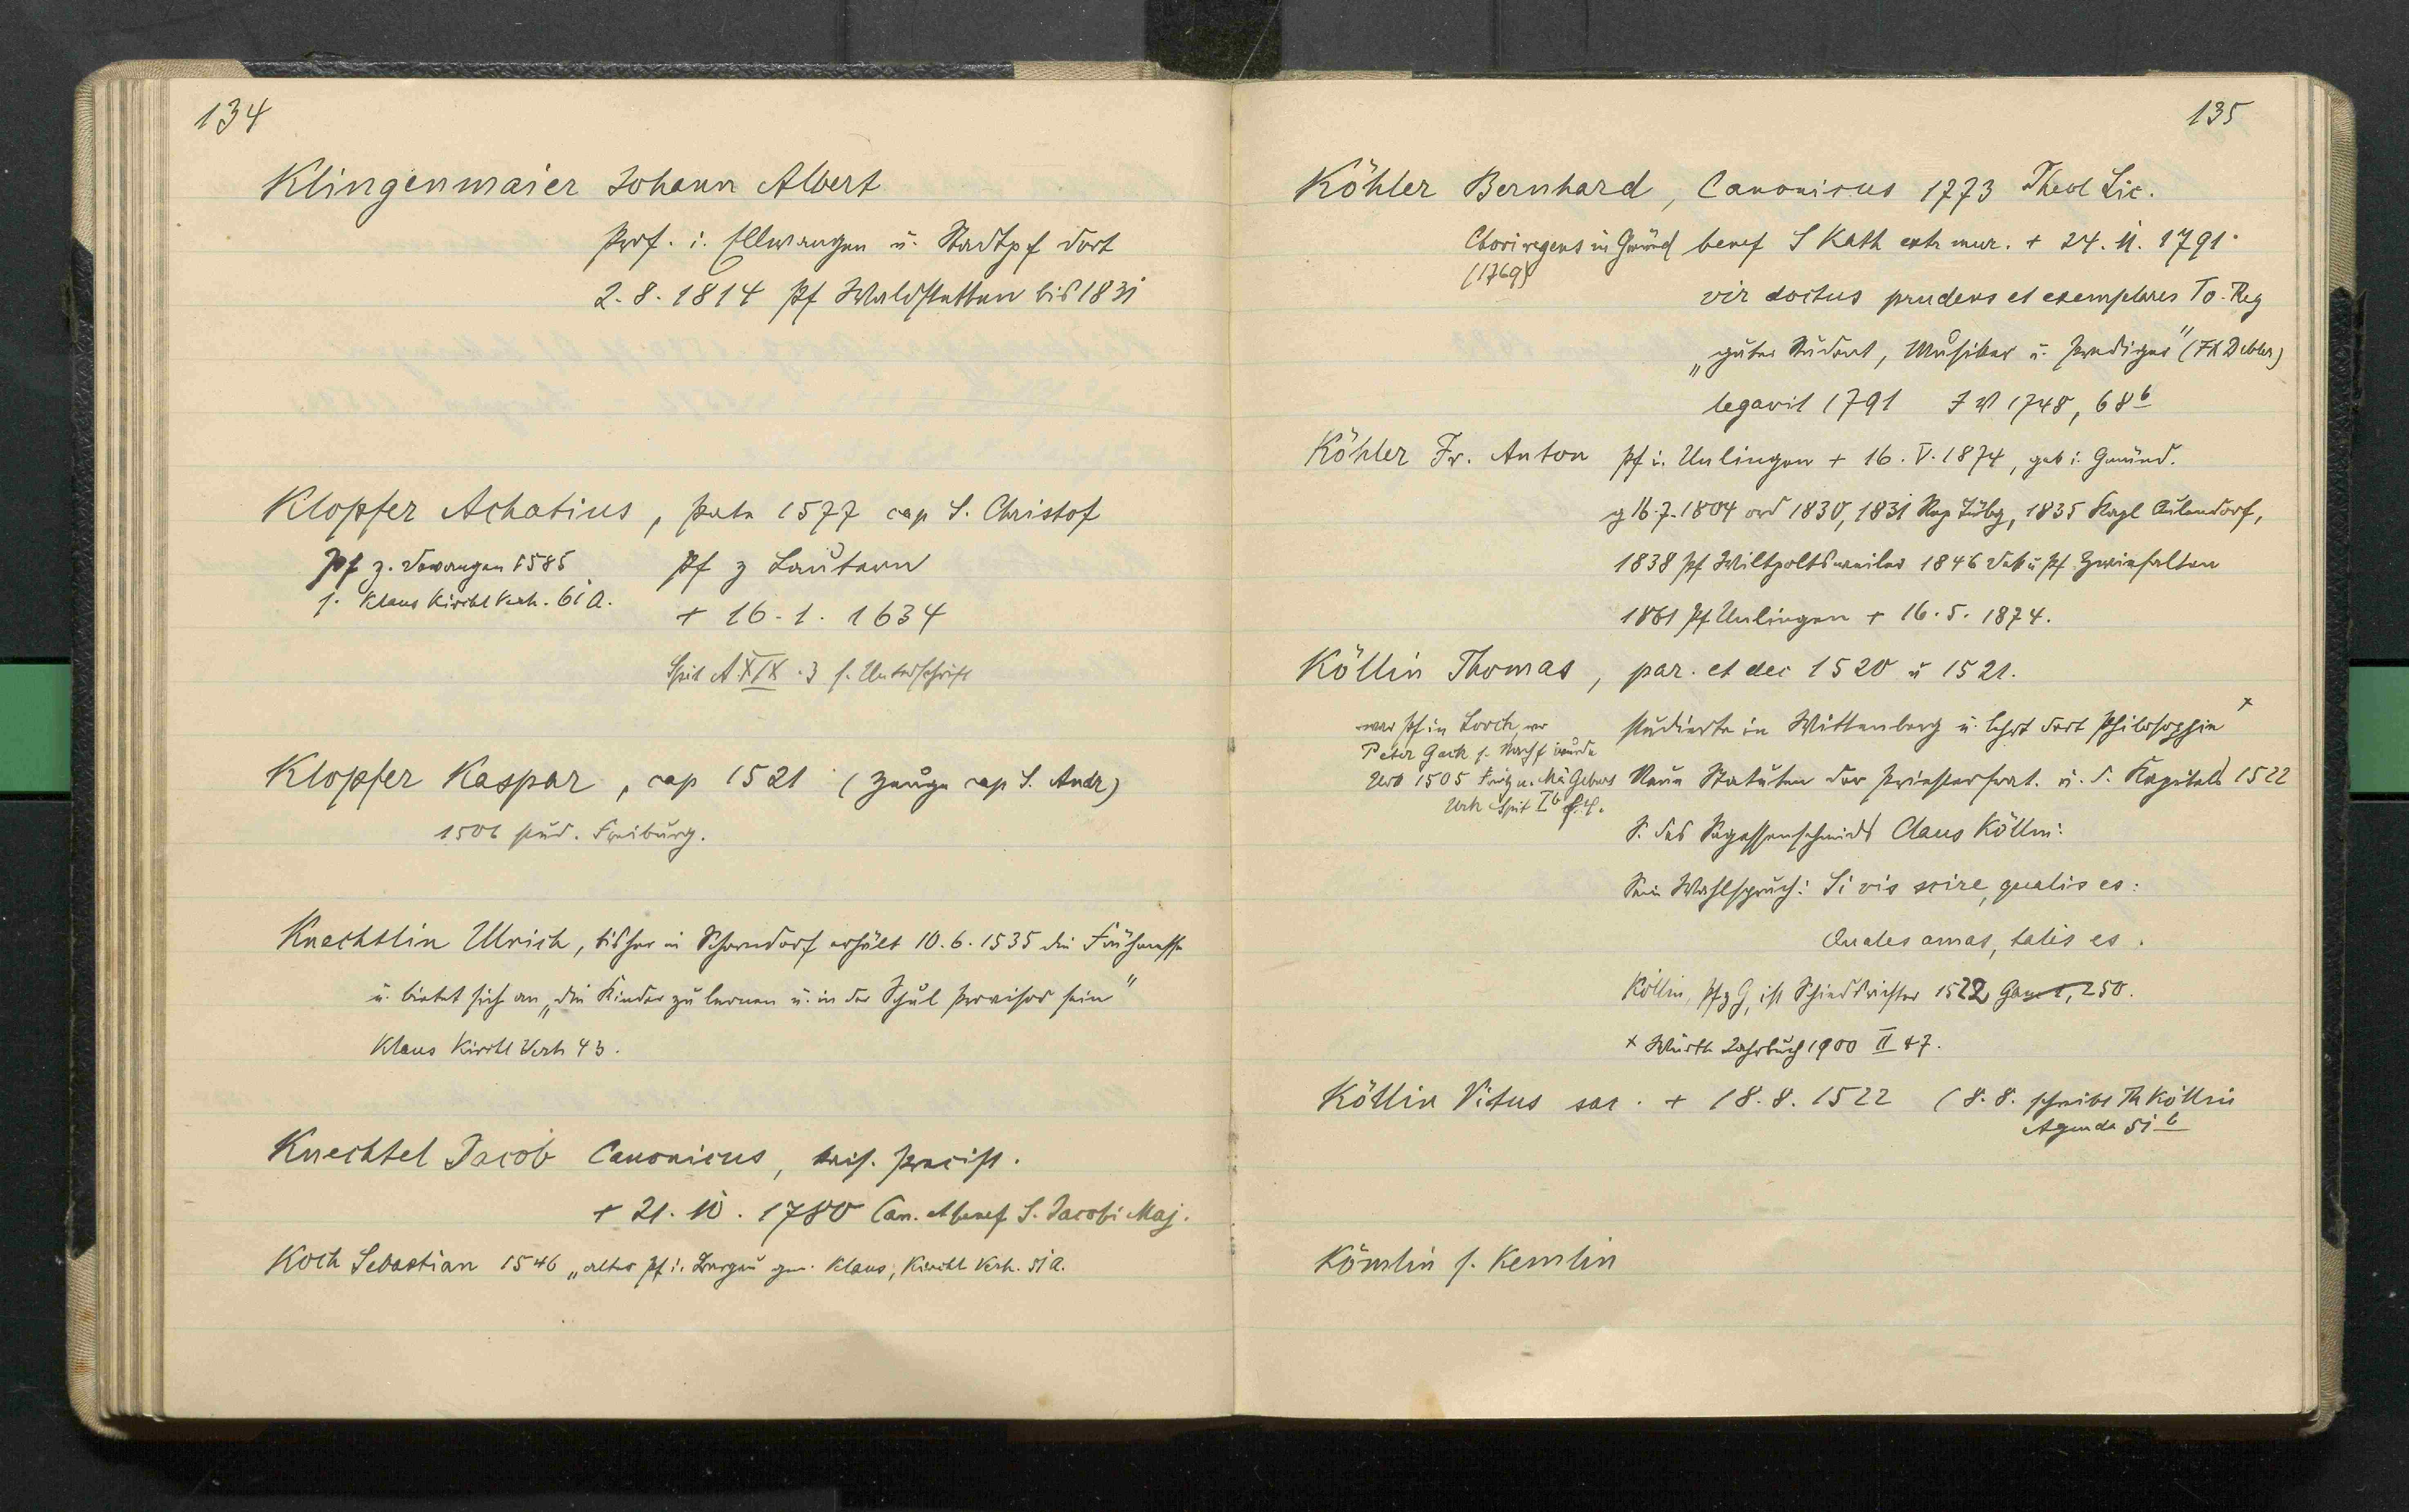 134
Klingenmaier Johann Albert
Prof. i. Ellwangen u. Stadtpf dort
2.8.1814 Pf Waldstetten bis 1831
Klopfer Achatius, 1577 cap S. Christof
Pf z. Dewangen 1585
s. Klaus Kirchl Verh. 61 a.
Pf z Lautern
+ 16.1.1634
Spit A XIX.3 s. Unterschrift
Klopfer Kaspar, cap 1521 (Zeuge cap S. Andr)
1506 stud. Freiburg.
Knechtlin Ulrich, bisher in Schorndorf erhält 10.6.1535 die Frühmesse
u. bietet sich an „die Kinder zu lernen u. in der Schul Provisor sein"
Klaus Kirchl Verh 43.
Knechtel Jacob Canonicus,
+ 21.10.1780 Can. et benef S. Jacobi Maj.
Koch Sebastian 1546 „alter Pf i. Klaus, Kirchl Verh. 51 a.
135
Köhler Bernhard, Canonicus 1773 Theol Lic.
Choriregens in Gmünd benef S Kath extr mur. + 24.11.1791.
(1769)
vir doctus prudens et exemplares To. Reg
„guter Student, Musiker u. Prediger" (FX Debler)
legavit 1791 1748, 68b
Köhler Fr. Anton Pf i. Unlingen + 16.V.1874, geb i. Gmünd.
g 16.7.1804 ord 1830, 1831 Rep Tübg, 1835 Kapl Aulendorf,
1838 Pf Wiltpoltsweiler 1846 Dek u Pf Zwiefalten
1861 Pf Unlingen + 16.5.1874.
Köllin Thomas, par. et dec 1520 u 1521.
war Pf in Lorch, wo
Peter Gack s. Nachf wurde
Urk 1505
Urk Spit
studierte in Wittenberg u. lehrt dort Philosophie x
Neue Statuten der Priesterbrat. u. d. Kapitels 1522
S. des Segessenschmids Claus Köllin.
Sein Wahlspruch: Si vis scire, qualis es:
Quales amas, talis es.
Köllin, Pf z G, ist Schiedsrichter 1522 250.
x Württ Jahrbuch 1900 II 47.
Köllin Vitus sac. + 18.8.1522 (8.8. schreibt Th Köllin
Agenda 51 b
Kömlin s. Kemlin